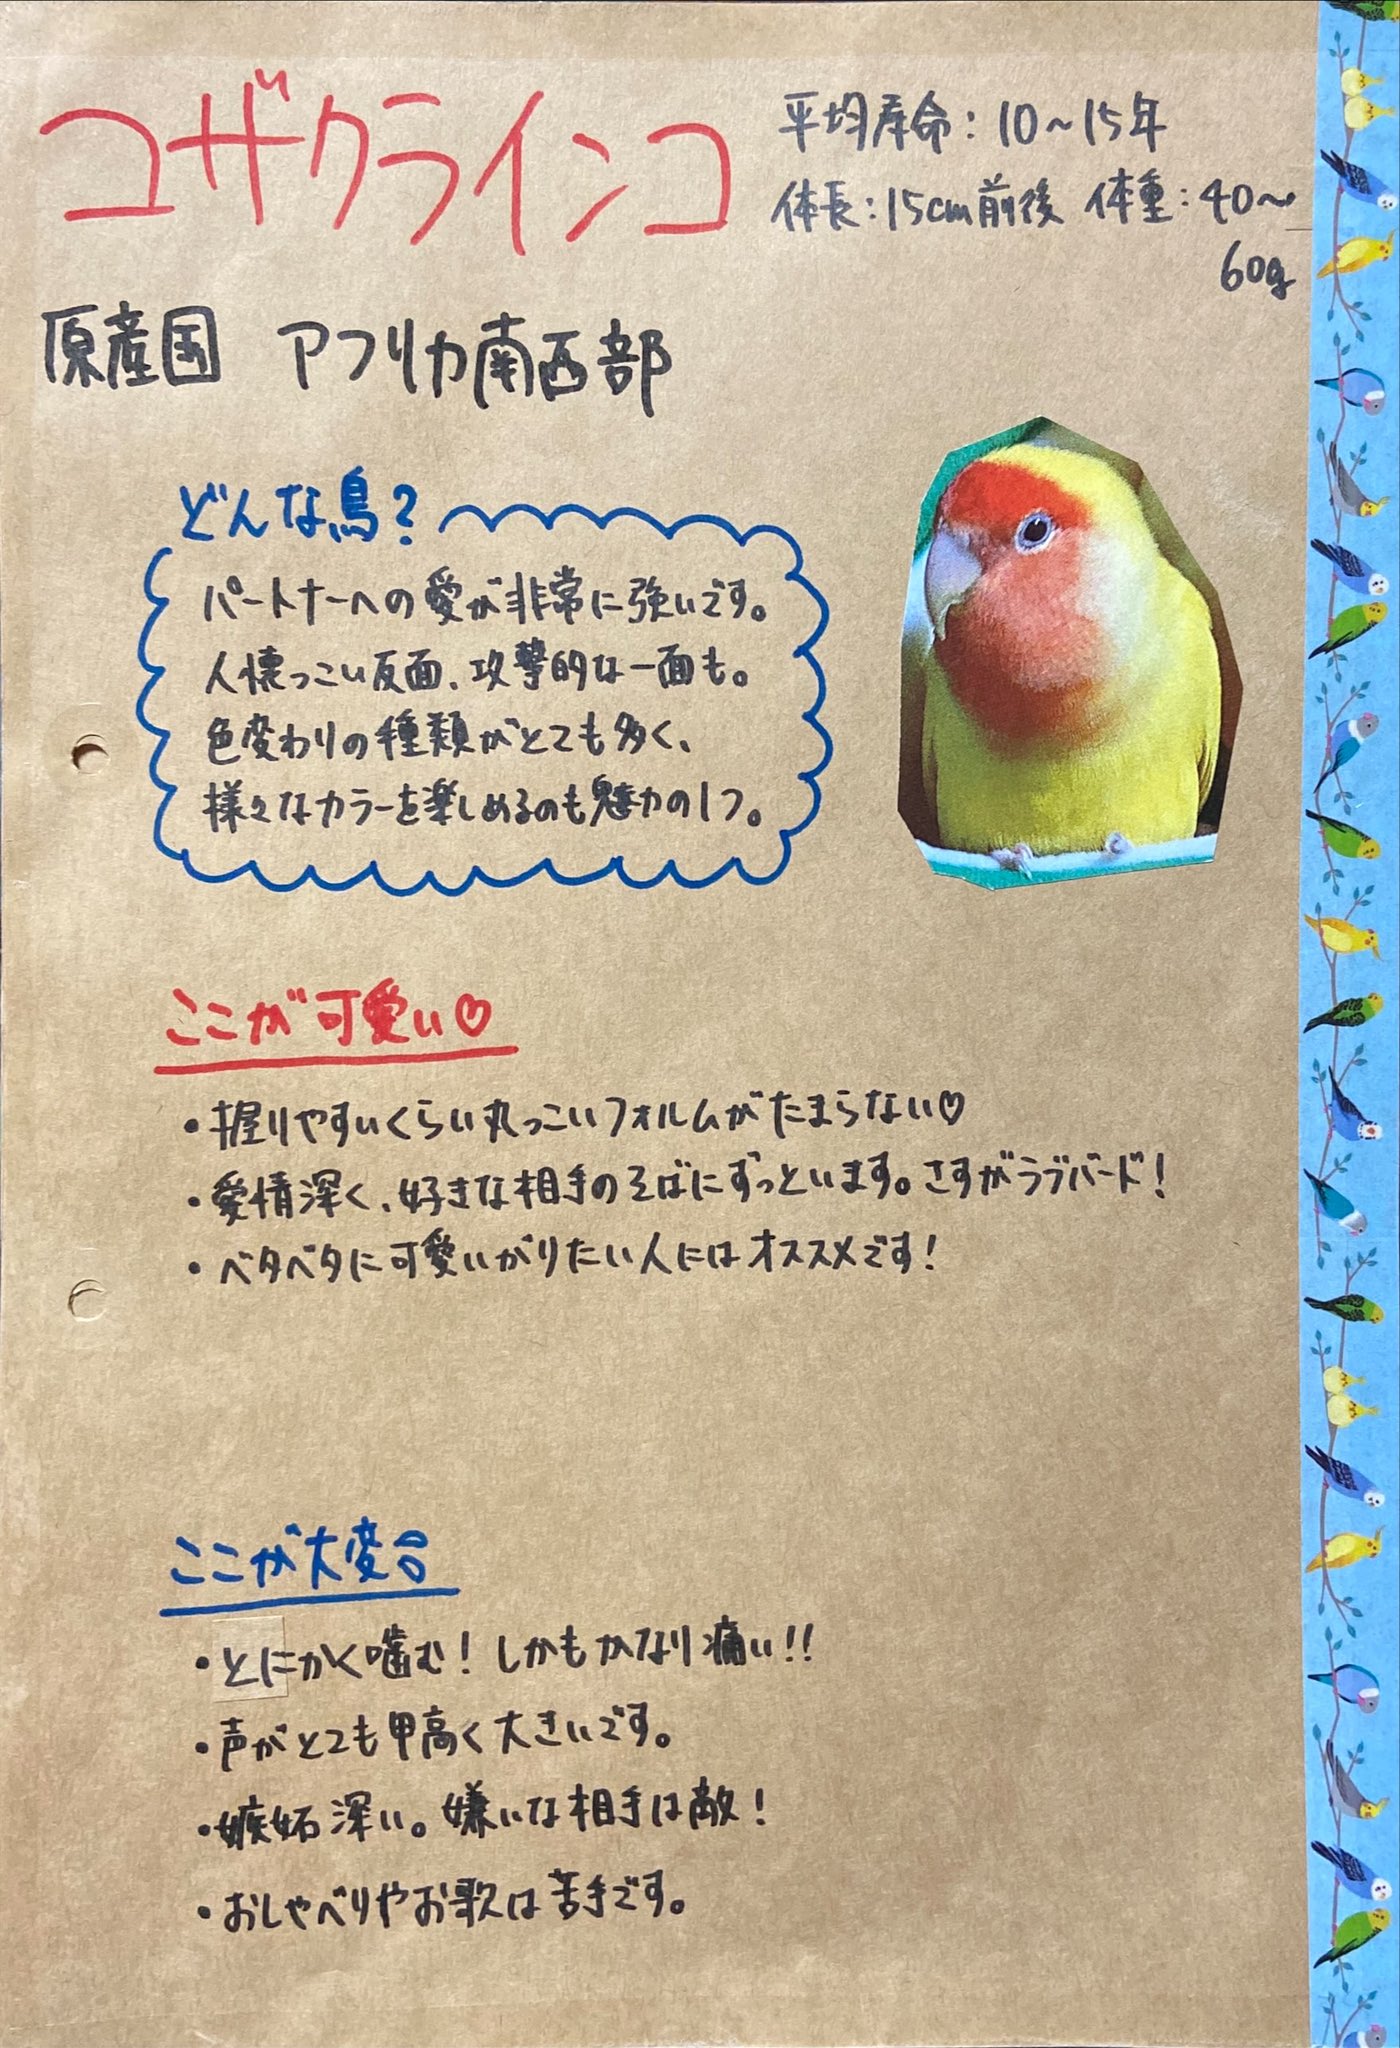 コザクラインコ
平均寿命：10～15年
体長：15cm前後 体重：40～
60g
原産国 アフリカ南西部
どんな鳥？
パートナーへの愛が非常に強いです。
人懐っこい反面、攻撃的な一面も。
色変わりの種類がとても多く、
様々なカラーを楽しめるのも魅力の1つ。
ここが可愛い♡
・握りやすいくらい丸っこいフォルムがたまらない♡
・愛情深く、好きな相手のそばにずっといます。さすがラブバード！
・ベタベタに可愛いがりたい人にはオススメです！
ここが大変
・とにかく噛む！しかもかなり痛い!!
・声がとても甲高く大きいです。
・嫉妬深い。嫌いな相手は敵！
・おしゃべりやお歌は苦手です。